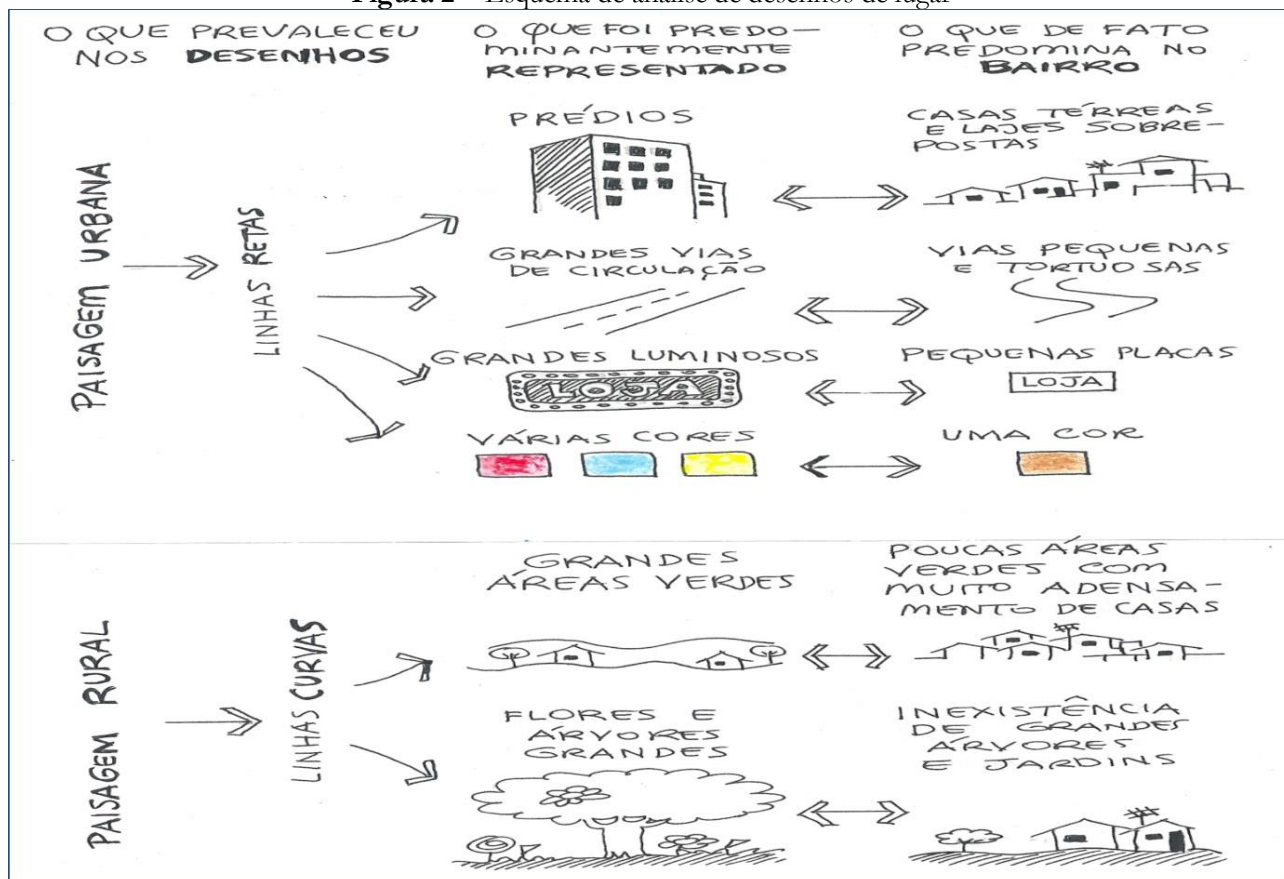 Figura 2 – Esquema de análise de desenhos de lugar
O QUE PREVALECEU
NOS DESENHOS
O QUE FOI PREDO-
MINANTEMENTE
REPRESENTADO
O QUE DE FATO
PREDOMINA NO
BAIRRO
PAISAGEM URBANA
LINHAS RETAS
PRÉDIOS
CASAS TÉRREAS
E LAJES SOBRE-
POSTAS
GRANDES VIAS
DE CIRCULAÇÃO
VIAS PEQUENAS
E TORTUOSAS
GRANDES LUMINOSOS
LOJA
PEQUENAS PLACAS
LOJA
VÁRIAS CORES
UMA COR
PAISAGEM RURAL
LINHAS CURVAS
GRANDES
ÁREAS VERDES
POUCAS ÁREAS
VERDES COM
MUITO ADENSA-
MENTO DE CASAS
FLORES E
ÁRVORES
GRANDES
INEXISTÊNCIA
DE GRANDES
ÁRVORES
E JARDINS